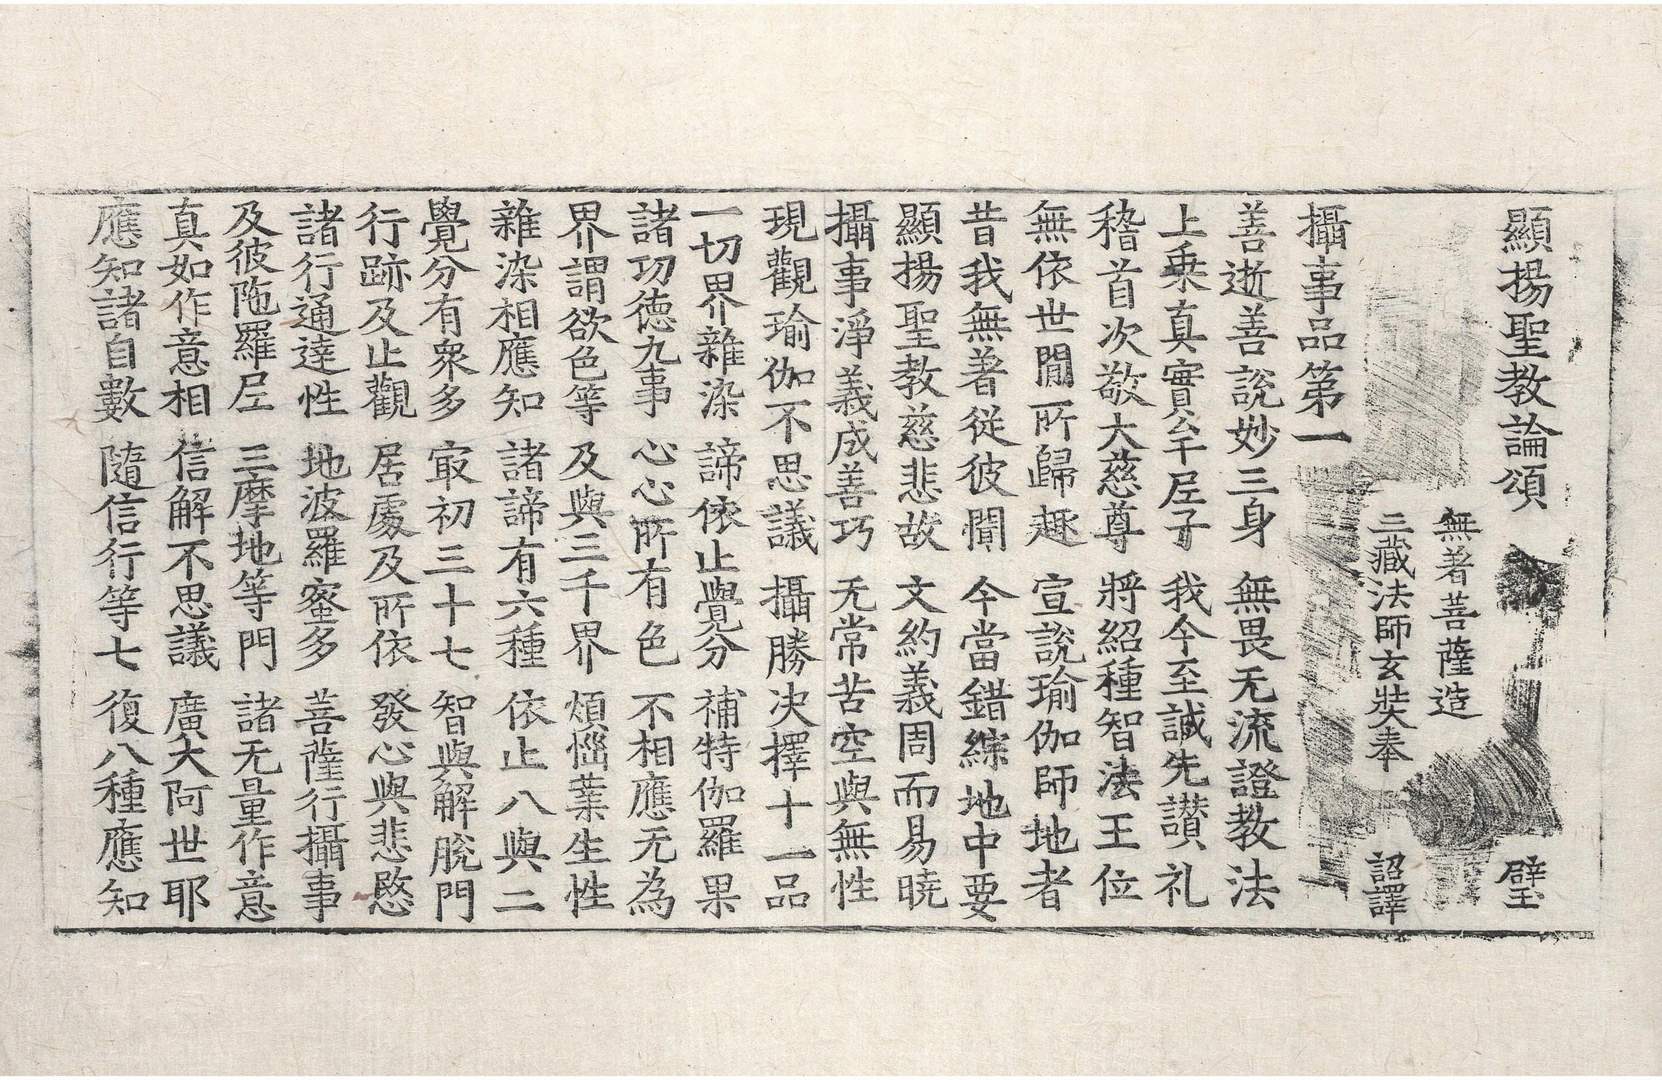 顯揚聖教論頌 璧
無著菩薩造
三藏法師玄奘奉 詔譯
攝事品第一
善逝善說妙三身 無畏无流證教法
上乗真實牟尼子 我今至誠先讃礼
稽首次敬大慈尊 將紹種智法王位
無依世閒所歸趣 宣說瑜伽師地者
昔我無著從彼聞 今當錯綜地中要
顯揚聖教慈悲故 文約義周而易曉
攝事淨義成善巧 无常苦空與無性
現觀瑜伽不思議 攝勝决擇十一品
一切界雜染 諦依止覺分 補特伽羅果
諸功德九事 心心所有色 不相應无為
界謂欲色等 及與三千界 煩惱業生性
雜染相應知 諸諦有六種 依止八與二
覺分有衆多 㝡初三十七 智與解脫門
行跡及止觀 居處及所依 發心與悲愍
諸行通達性 地波羅蜜多 菩薩行攝事
及彼陁羅尼 三摩地等門 諸无量作意
真如作意相 信解不思議 廣大阿世耶
應知諸自數 隨信行等七 復八種應知